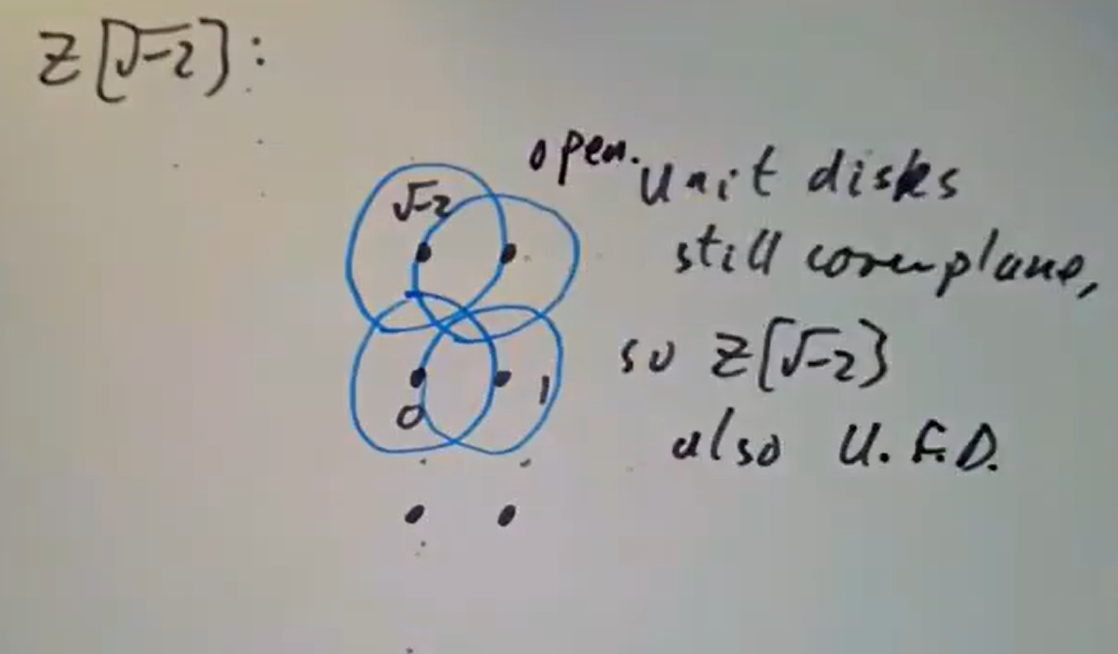 Z[√-2]:
open.
unit disks
√-2
still cover plane,
so Z[√-2]
0
1
also U.F.D.